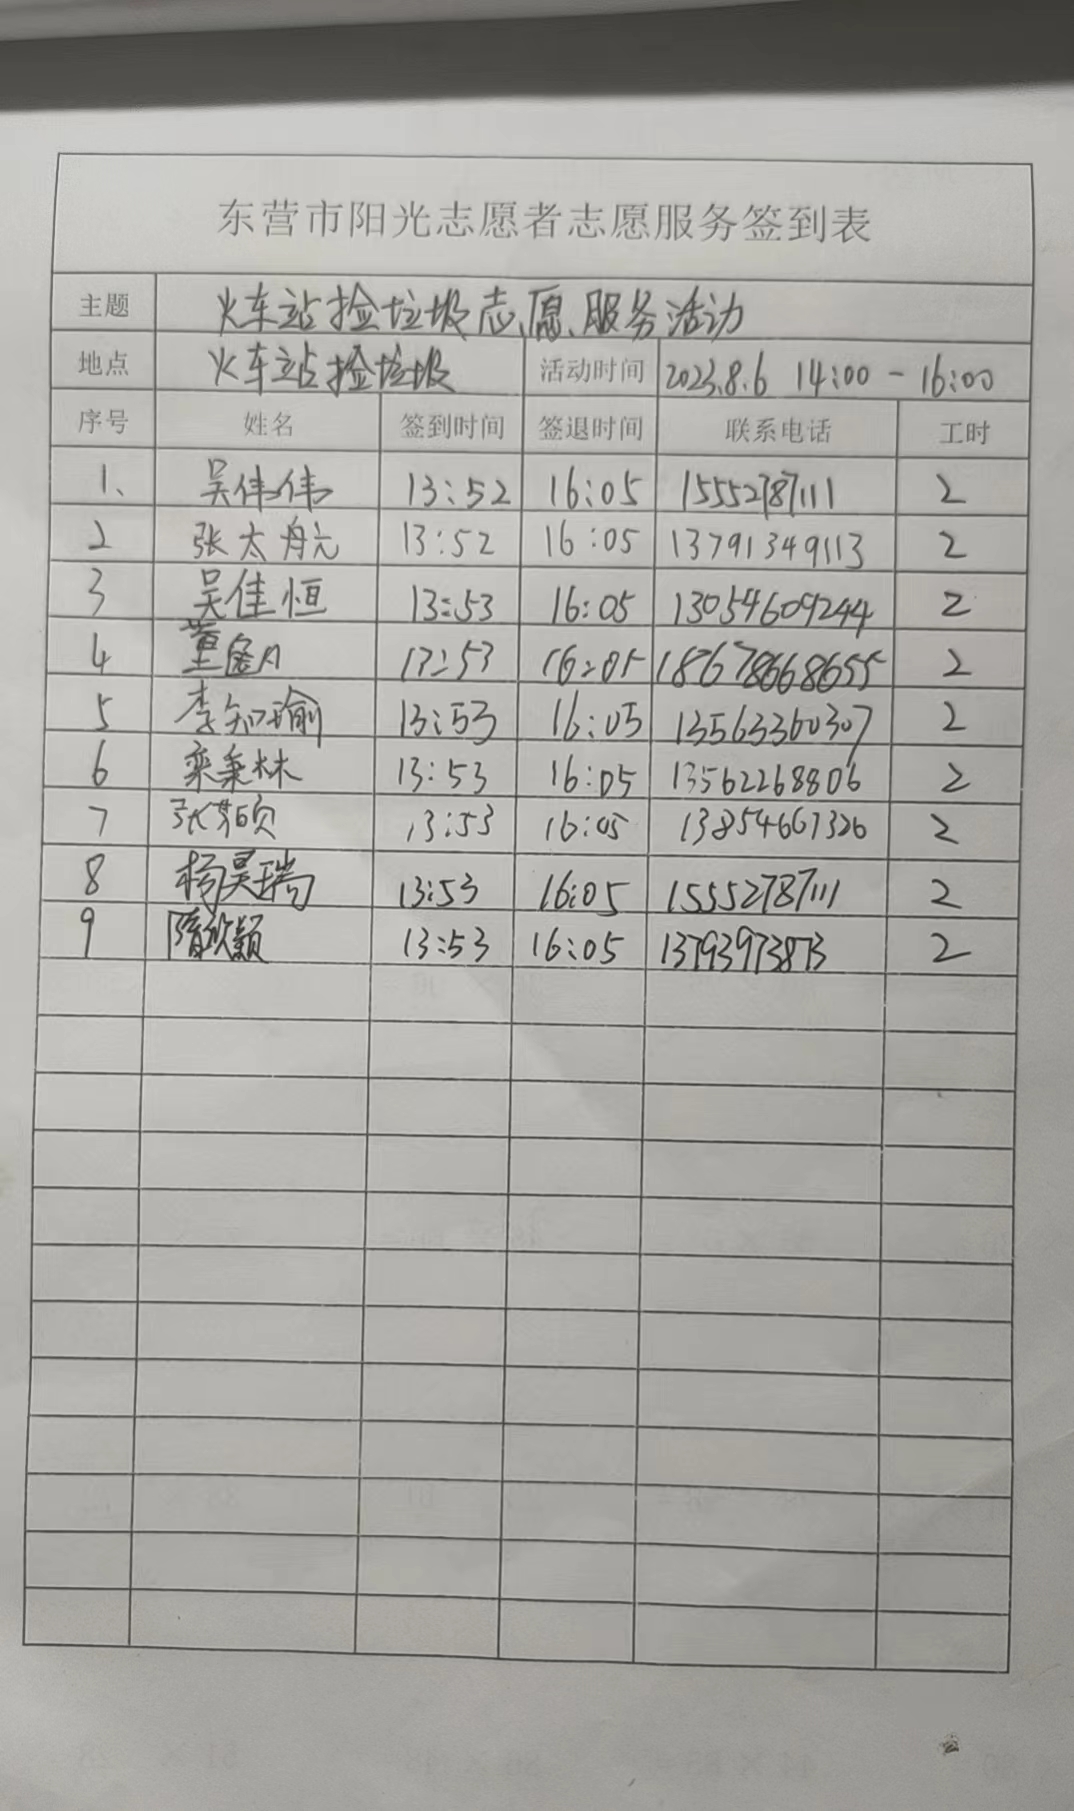 东营市阳光志愿者志愿服务签到表
主题 火车站捡垃圾志愿服务活动
地点 火车站捡垃圾 活动时间 2023.8.6 14:00-16:00
序号 姓名 签到时间 签退时间 联系电话 工时
1、 吴伟伟 13:52 16:05 15552787111 2
2 张太航 13:52 16:05 13791349113 2
3 吴佳恒 13:53 16:05 13054609244 2
4 董 13:53 16:05 18678668655 2
5 李知瑜 13:53 16:05 13563360307 2
6 栾秉林 13:53 16:05 13562268806 2
7 张硕 13:53 16:05 13854667326 2
8 杨昊瑞 13:53 16:05 15552787111 2
9 隋欣颖 13:53 16:05 13793973873 2